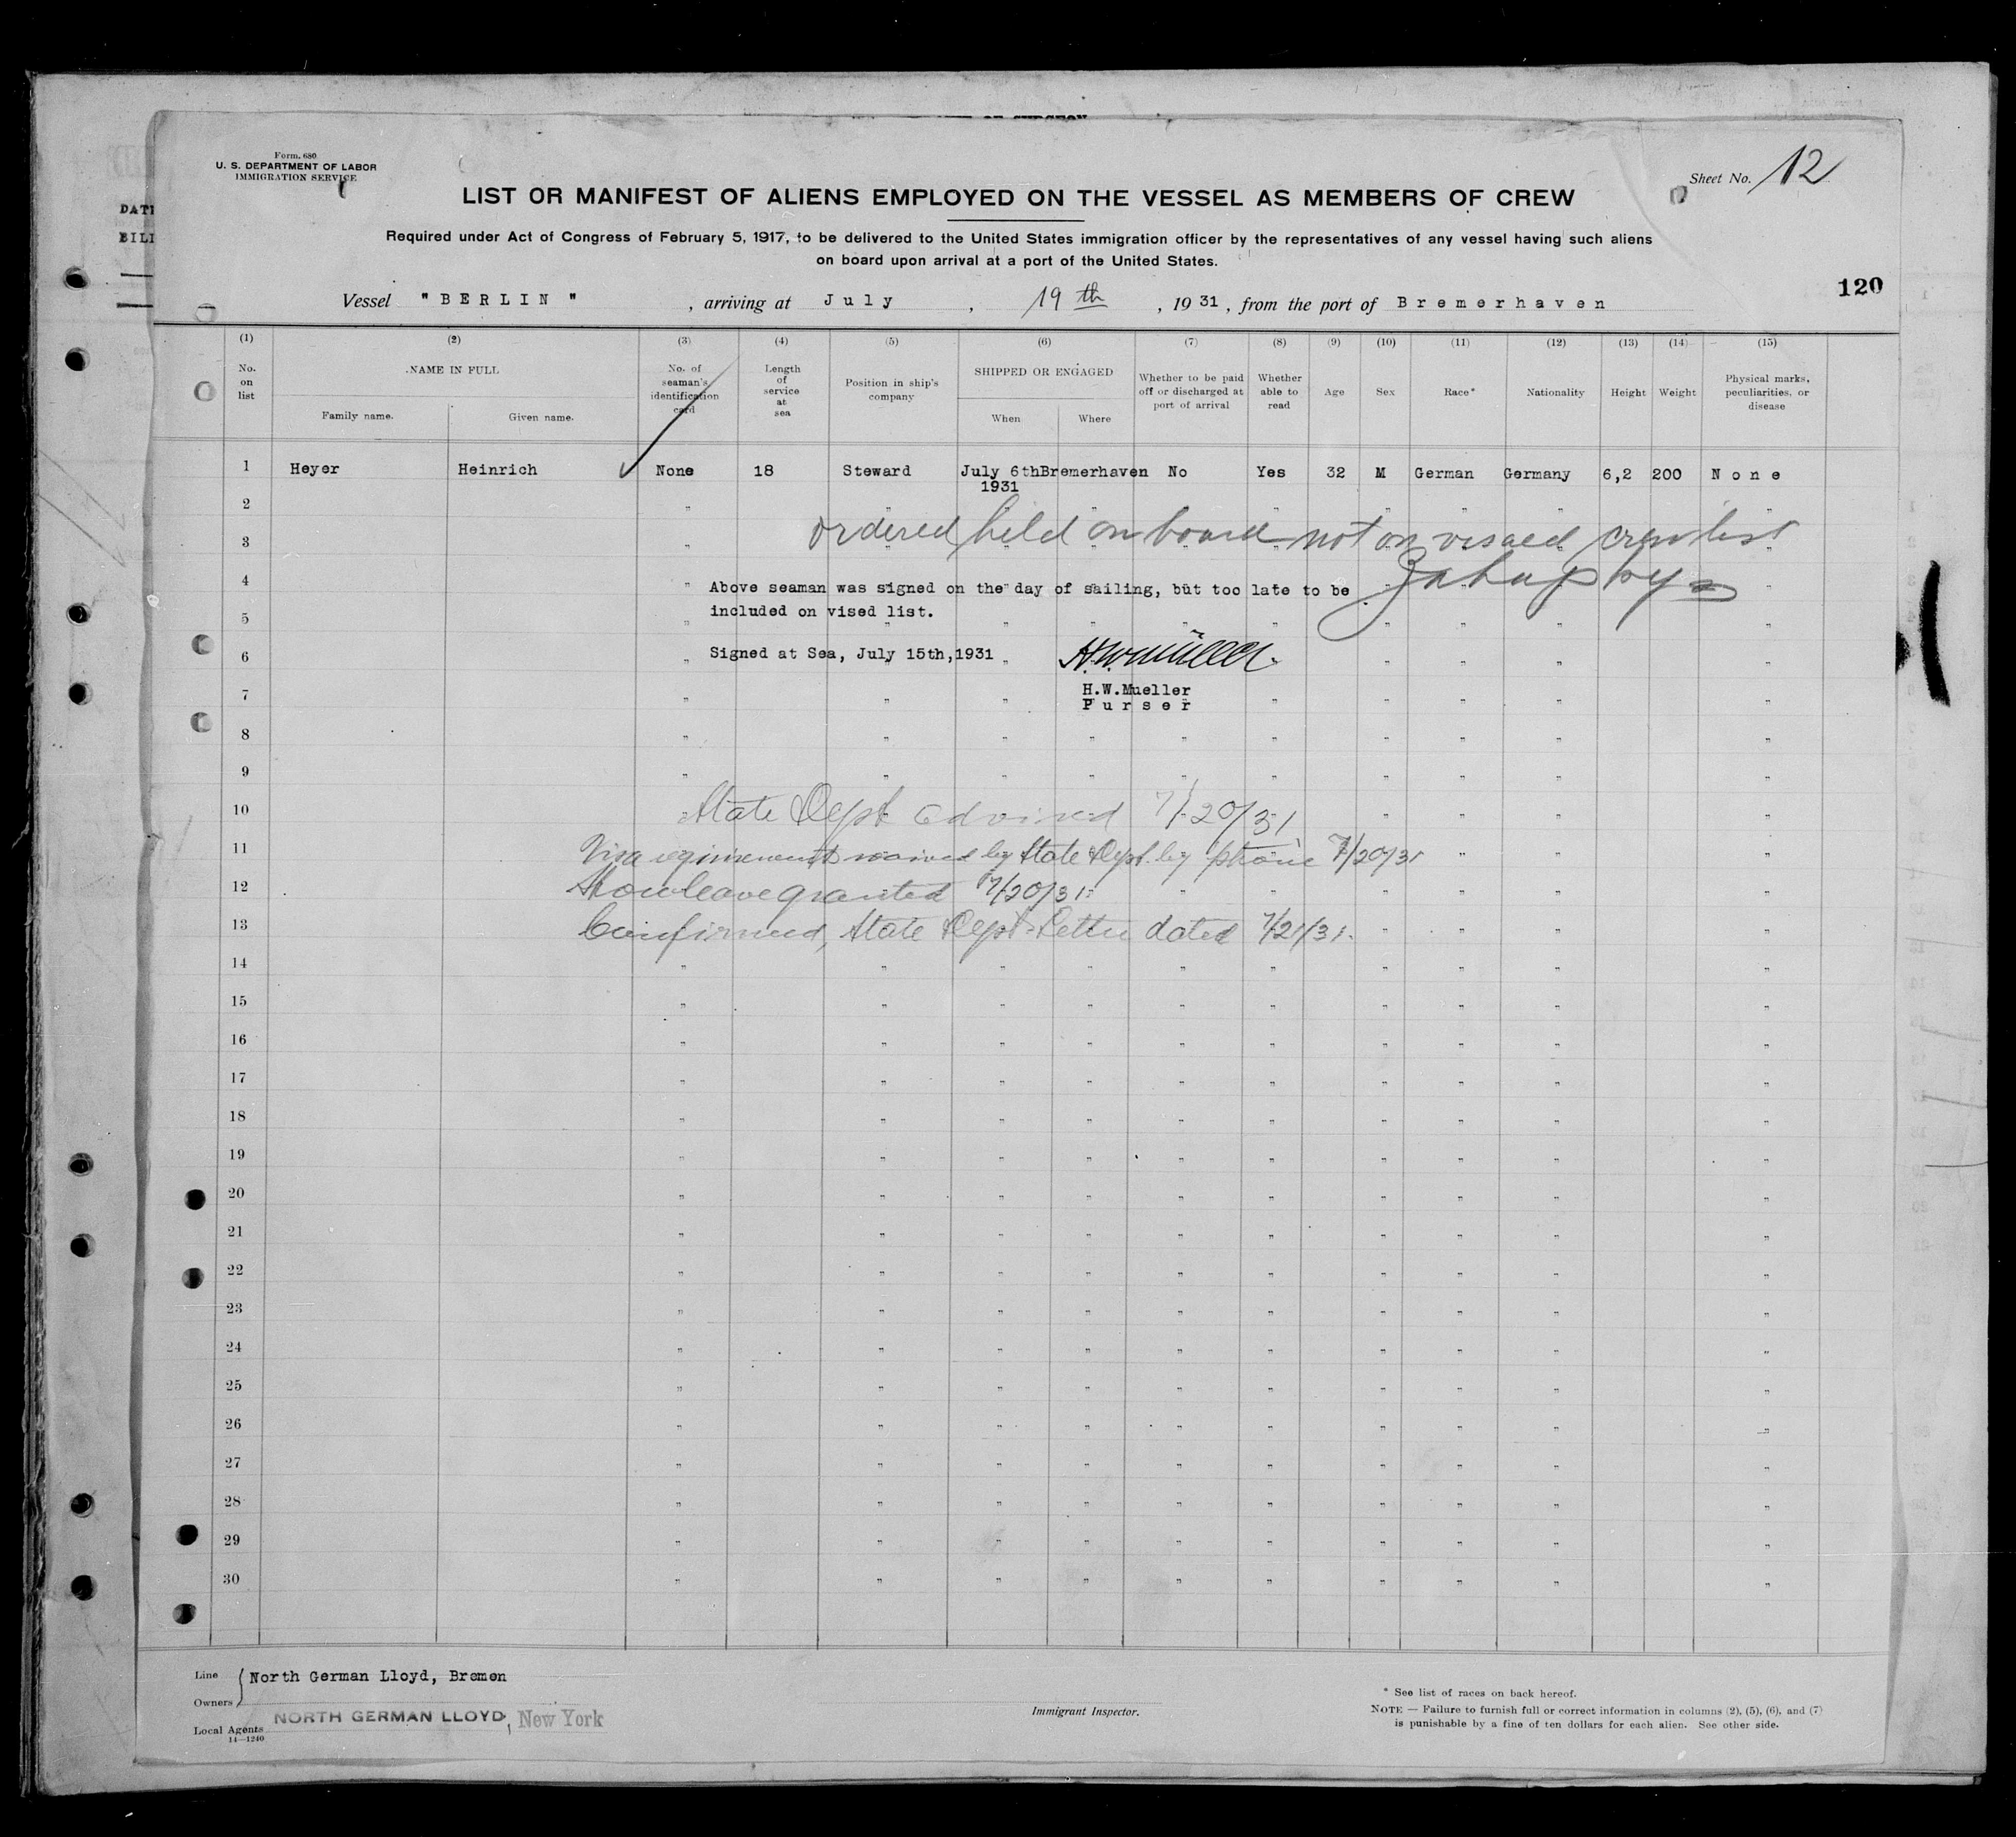 OF SURGEON
Form. 680
U. S. DEPARTMENT OF LABOR
IMMIGRATION SERVICE
Sheet No. 12
LIST OR MANIFEST OF ALIENS EMPLOYED ON THE VESSEL AS MEMBERS OF CREW
Required under Act of Congress of February 5, 1917, to be delivered to the United States immigration officer by the representatives of any vessel having such aliens
on board upon arrival at a port of the United States.
120
Vessel "BERLIN", arriving at July, 19th, 1931, from the port of Bremerhaven
(1) (2) (3) (4) (5) (6) (7) (8) (9) (10) (11) (12) (13) (14) (15)
No. on list
NAME IN FULL
Family name. Given name.
No. of seaman's identification card
Length of service at sea
Position in ship's company
SHIPPED OR ENGAGED
When Where
Whether to be paid off or discharged at port of arrival
Whether able to read
Age
Sex
Race*
Nationality
Height
Weight
Physical marks, peculiarities, or disease
1 Heyer Heinrich None 18 Steward July 6th Bremerhaven No Yes 32 M German Germany 6,2 200 None
1931
2
ordered held on board not on visaed crew list
3
4 Above seaman was signed on the day of sailing, but too late to be
included on vised list.
5
6 Signed at Sea, July 15th, 1931 H.W. Müller
7 H.W.Mueller
Purser
8
9
10 State Dept advised 7/20/31
11 Visa requirements waived by State Dept. by phone 7/20/31
12 Shore leave granted 7/20/31
13 Confirmed, State Dept. Letter dated 7/21/31.
14
15
16
17
18
19
20
21
22
23
24
25
26
27
28
29
30
Line North German Lloyd, Bremen
Owners
Local Agents NORTH GERMAN LLOYD, New York
14—1240
Immigrant Inspector.
* See list of races on back hereof.
NOTE — Failure to furnish full or correct information in columns (2), (5), (6), and (7)
is punishable by a fine of ten dollars for each alien. See other side.